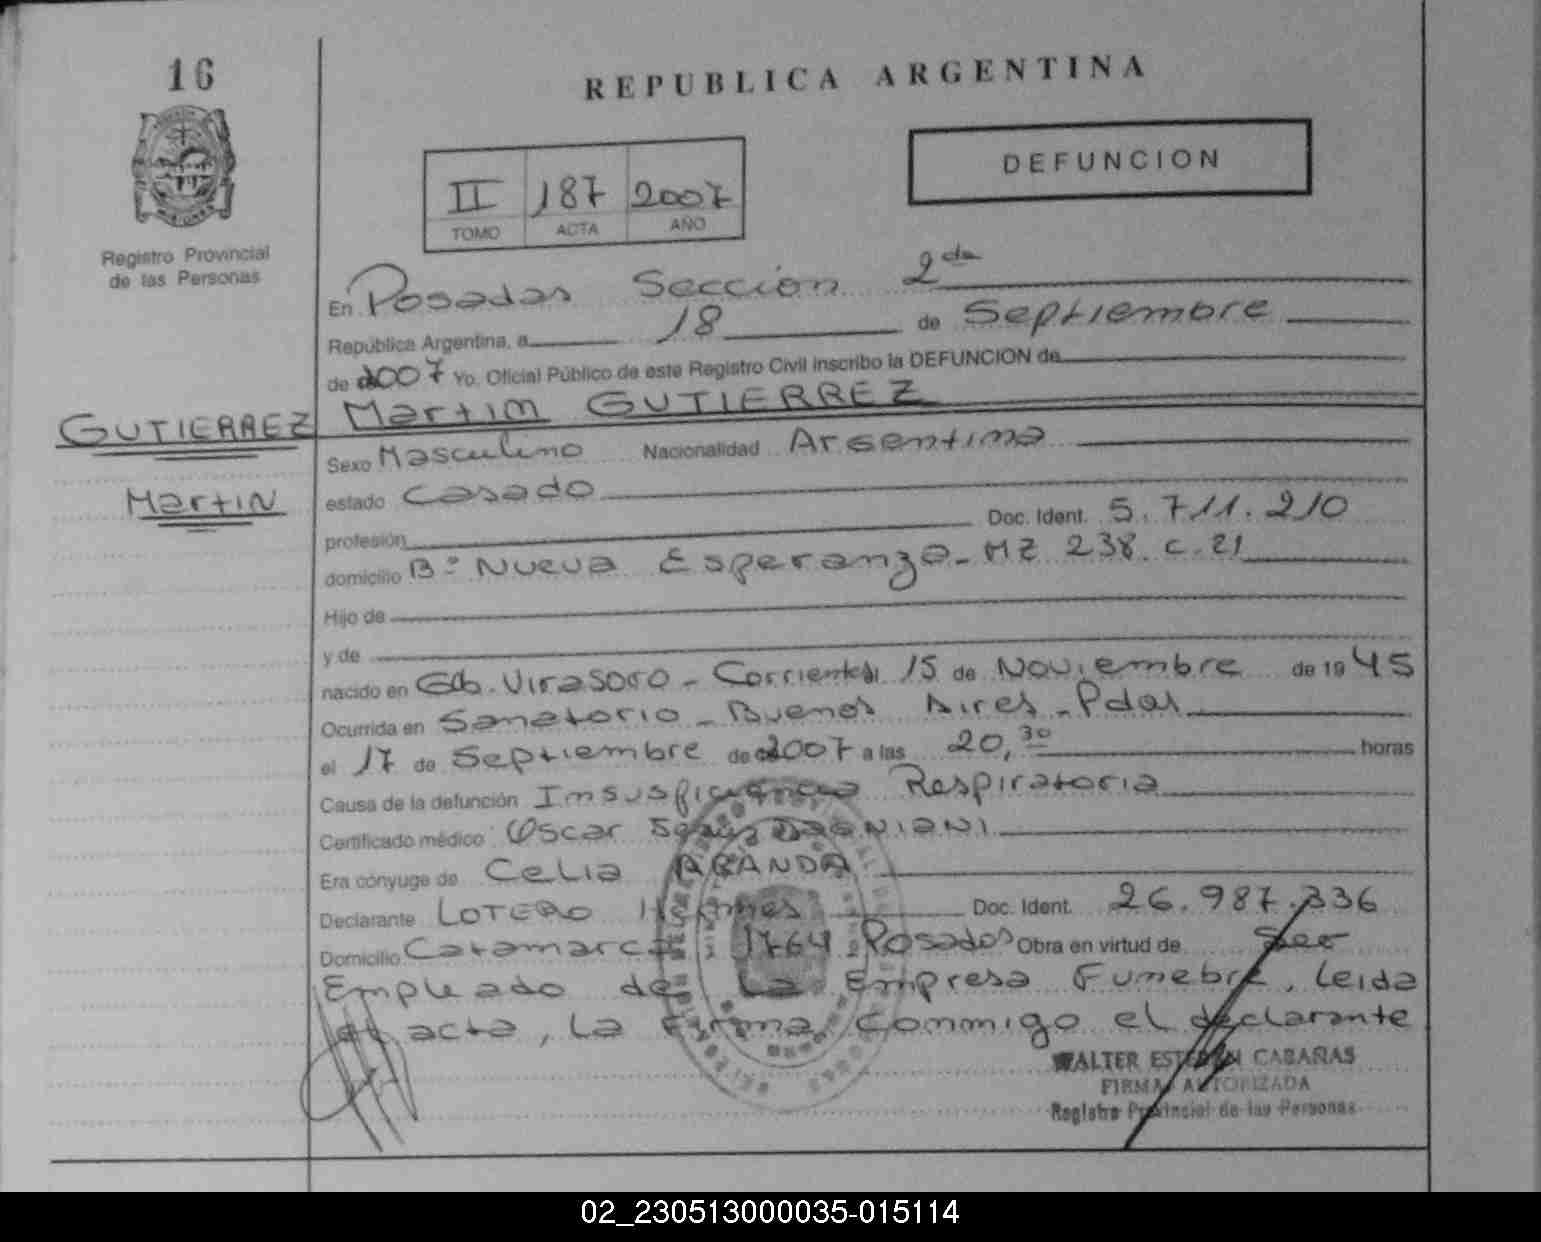 16
REPUBLICA ARGENTINA
DEFUNCION
II 187 2007
TOMO ACTA AÑO
Registro Provincial
de las Personas
En Posadas Sección 2da
República Argentina, a 18 de Septiembre
de 2007 Yo, Oficial Público de este Registro Civil inscribo la DEFUNCION de
GUTIERREZ Martin GUTIERREZ
Sexo Masculino Nacionalidad Argentina
Martin
estado Casado
profesión Doc. Ident. 5.711.210
domicilio B° Nueva Esperanza - MZ 238. c. 21
Hijo de
y de
nacido en Gob. Virasoro - Corrientes 15 de Noviembre de 1945
Ocurrida en Sanatorio - Buenos Aires - Pdas
el 17 de Septiembre de 2007 a las 20,30 horas
Causa de la defunción Insuficiencia Respiratoria
Certificado médico Oscar
Era cónyuge de Celia ARANDA
Declarante LOTERO Hermes Doc. Ident. 26.987.336
Domicilio Catamarca 1764 Posadas Obra en virtud de Ser
Empleado de La Empresa Funebre, leida
el acta, la firma conmigo el declarante
WALTER ESTEBAN CABAÑAS
FIRMA AUTORIZADA
Registro Provincial de las Personas
02_230513000035-015114